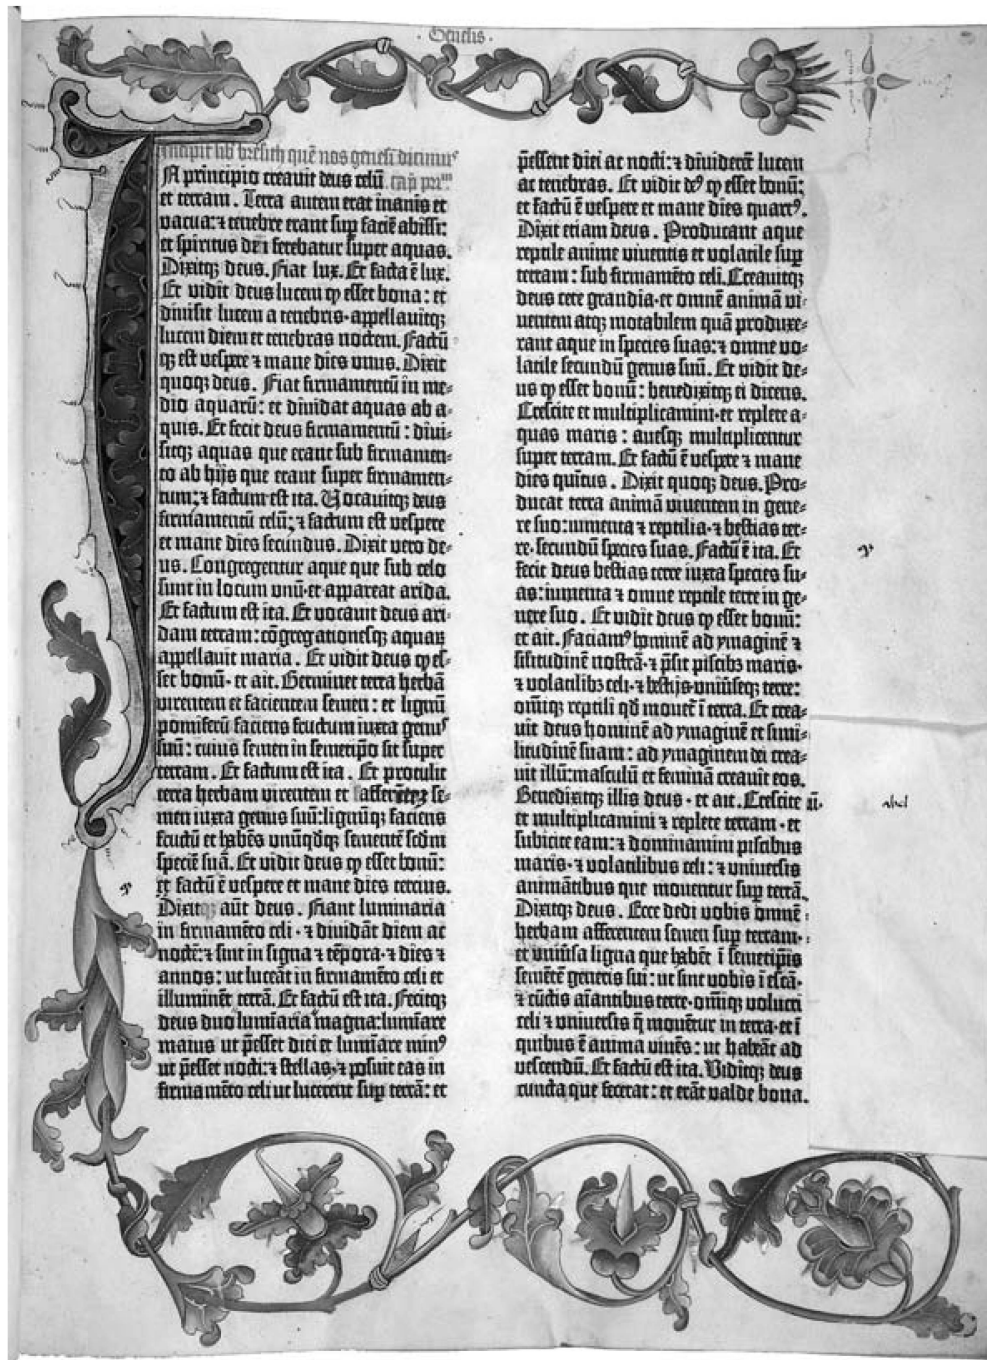 · Genesis ·
Incipit lib̄ bresith quē nos genesī dicimꝰ
In principio creauit deus celū cap̄ primū
et terram. Terra autem erat inanis et
vacua: ⁊ tenebre erant sup̲ faciē abissi:
et spiritus dn̄i ferebatur super aquas.
Dixitqꝫ deus. Fiat lux. Et facta ē lux.
Et vidit deus lucem ꝙ esset bona: et
diuisit lucem a tenebris· appellauitqꝫ
lucem diem et tenebras noctem. Factū
qꝫ est vespꝛe ⁊ mane dies vnus. Dixit
quoqꝫ deus. Fiat firmamentū in me-
dio aquarū: et diuidat aquas ab a-
quis. Et fecit deus firmamentū: diui-
sitqꝫ aquas que erant sub firmamen-
to ab hijs que erant super firmamen-
tum: ⁊ factum est ita. Vocauitqꝫ deus
firmamentū celū: ⁊ factum est vespere
et mane dies secundus. Dixit vero de-
us. Congregentur aque que sub celo
sunt in locum vnū et appareat arida.
Et factum est ita. Et vocauit deus ari-
dam terram: cōgregationesqꝫ aquaꝝ
appellauit maria. Et vidit deus ꝙ es-
set bonū· et ait. Germinet terra herbā
virentem et facientem semen: et lignū
pomiferū faciens fructum iuxta genꝰ
suū: cuius semen in semetip̄o sit super
terram. Et factum est ita. Et protulit
terra herbam virentem et afferentē se-
men iuxta genus suū: lignūqꝫ faciens
fructū et habēs vnūqdqꝫ sementē scdm
speciē suā. Et vidit deus ꝙ esset bonū:
et factū ē vespere et mane dies tercius.
Dixitqꝫ aūt deus. Fiant luminaria
in firmamēto celi· ⁊ diuidāt diem ac
noctē: ⁊ sint in signa ⁊ tēpora· ⁊ dies ⁊
annos: ut luceāt in firmamēto celi et
illuminēt terrā. Et factū est ita. Fecitqꝫ
deus duo lumīaria magna: lumīare
maius ut p̄esset diei et lumīare minꝰ
ut p̄esset nocti: ⁊ stellas· ⁊ posuit eas in
firmamēto celi ut lucerent sup̲ terrā: et
p̄essent diei ac nocti: ⁊ diuiderēt lucem
ac tenebras. Et vidit dꝰ ꝙ esset bonū:
et factū ē vespere et mane dies quartꝰ.
Dixit etiam deus. Producant aque
reptile anime viuentis et volatile sup̲
terram: sub firmamēto celi. Creauitqꝫ
deus cete grandia· et omnē animā vi-
uentem atqꝫ motabilem quā produxe-
rant aque in species suas: ⁊ omne vo-
latile secundū genus suū. Et vidit de-
us ꝙ esset bonū: benedixitqꝫ ei dicens.
Crescite et multiplicamini· et replete a-
quas maris: auesqꝫ multiplicentur
super terram. Et factū ē vespꝛe ⁊ mane
dies quītus. Dixit quoqꝫ deus. Pro-
ducat terra animā viuentem in gene-
re suo: iumenta ⁊ reptilia· ⁊ bestias ter-
re· secundū species suas. Factū ē ita. Et
fecit deus bestias terre iuxta species su-
as: iumenta ⁊ omne reptile terre in ge-
nere suo. Et vidit deus ꝙ esset bonū:
et ait. Faciamꝰ hominē ad ymaginē ⁊
silitudinē nostrā· ⁊ p̄sit piscibꝫ maris·
⁊ volatilibꝫ celi· ⁊ bestijs vniūseqꝫ terre:
omīqꝫ reptili qd mouet̄ ī terra. Et crea-
uit deus hominē ad ymaginē et simi-
litudinē suam: ad ymaginem dei crea-
uit illū: masculū et feminā creauit eos.
Benedixitqꝫ illis deus· et ait. Crescite
et multiplicamini ⁊ replete terram· et
subicite eam: ⁊ dominamini piscibus
maris· ⁊ volatilibus celi: ⁊ vniuersis
animātibus que mouentur sup̲ terrā.
Dixitqꝫ deus. Ecce dedi vobis omnē
herbam afferentem semen sup̲ terram·
et vniūsa ligna que habēt ī semetip̄is
semētē generis sui: ut sint vobis ī escā·
⁊ cūctis aīantibus terre· omīqꝫ volucri
celi ⁊ vniuersis q̄ mouētur in terra· et ī
quibus ē anima viuēs: ut habeāt ad
vescendū. Et factū est ita. Viditqꝫ deus
cuncta que fecerat: et erāt valde bona.